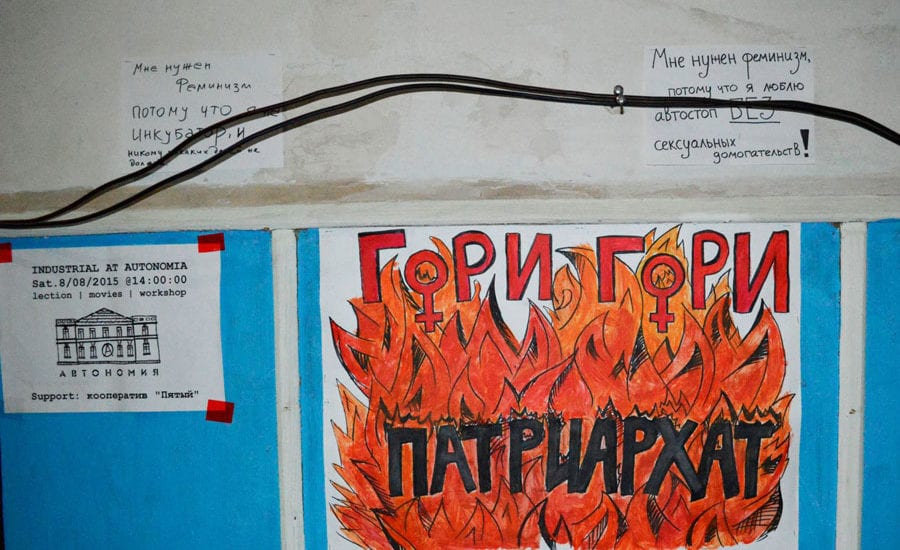 Мне нужен
Феминизм
потому что я не
инкубатор, и
никому не
Мне нужен феминизм,
потому что я люблю
автостоп БЕЗ
сексуальных
домогательств!
INDUSTRIAL AT AUTONOMIA
Sat.8/08/2015 @14:00:00
lection | movies | workshop
АВТОНОМИЯ
Support: кооператив "Пятый"
ГОРИ ГОРИ
ПАТРИАРХАТ